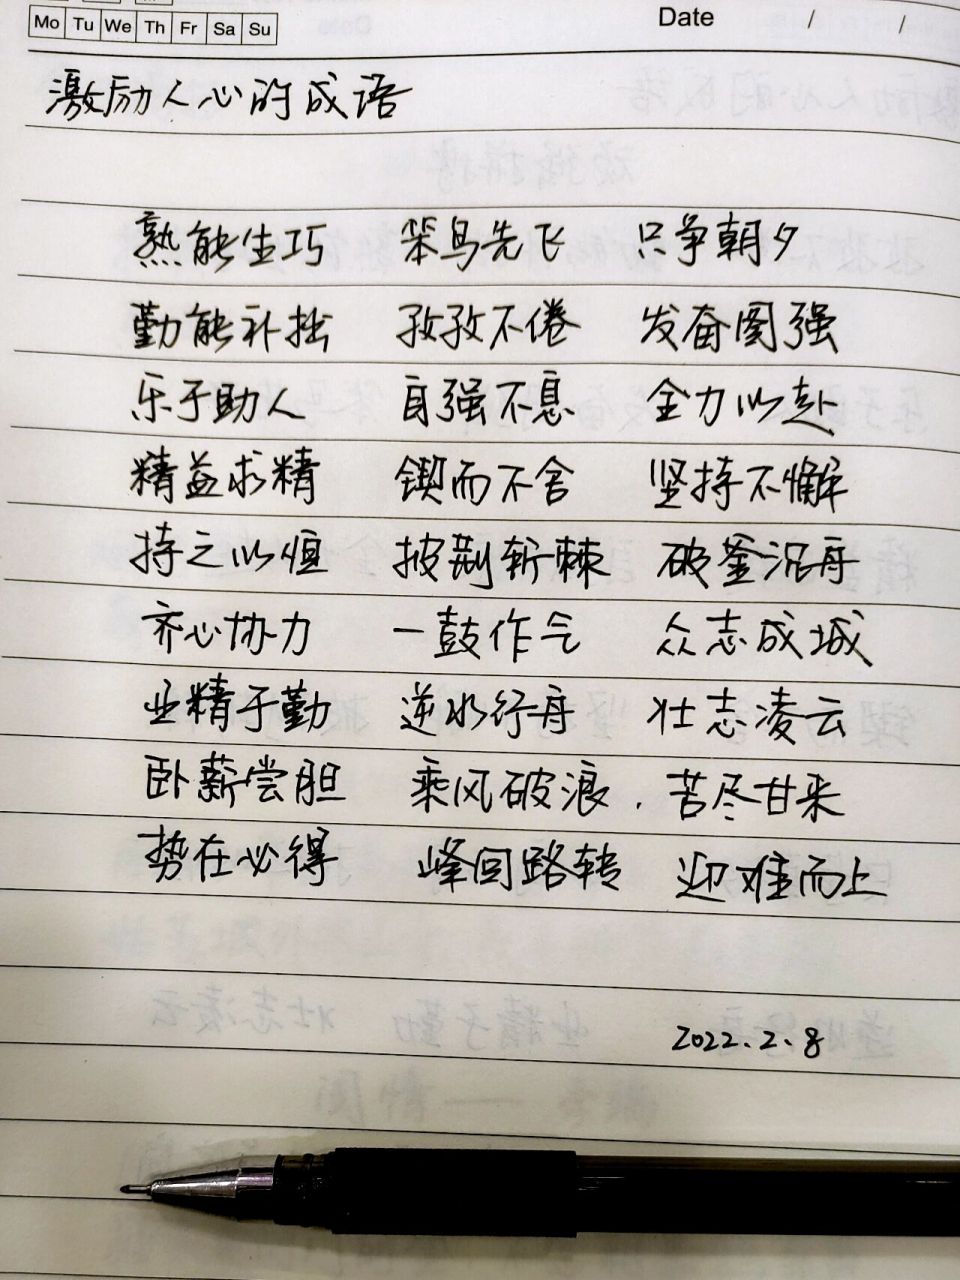 Mo Tu We Th Fr Sa Su Date / /
激励人心的成语
熟能生巧 笨鸟先飞 只争朝夕
勤能补拙 孜孜不倦 发奋图强
乐于助人 自强不息 全力以赴
精益求精 锲而不舍 坚持不懈
持之以恒 披荆斩棘 破釜沉舟
齐心协力 一鼓作气 众志成城
业精于勤 逆水行舟 壮志凌云
卧薪尝胆 乘风破浪. 苦尽甘来
势在必得 峰回路转 迎难而上
2022.2.8